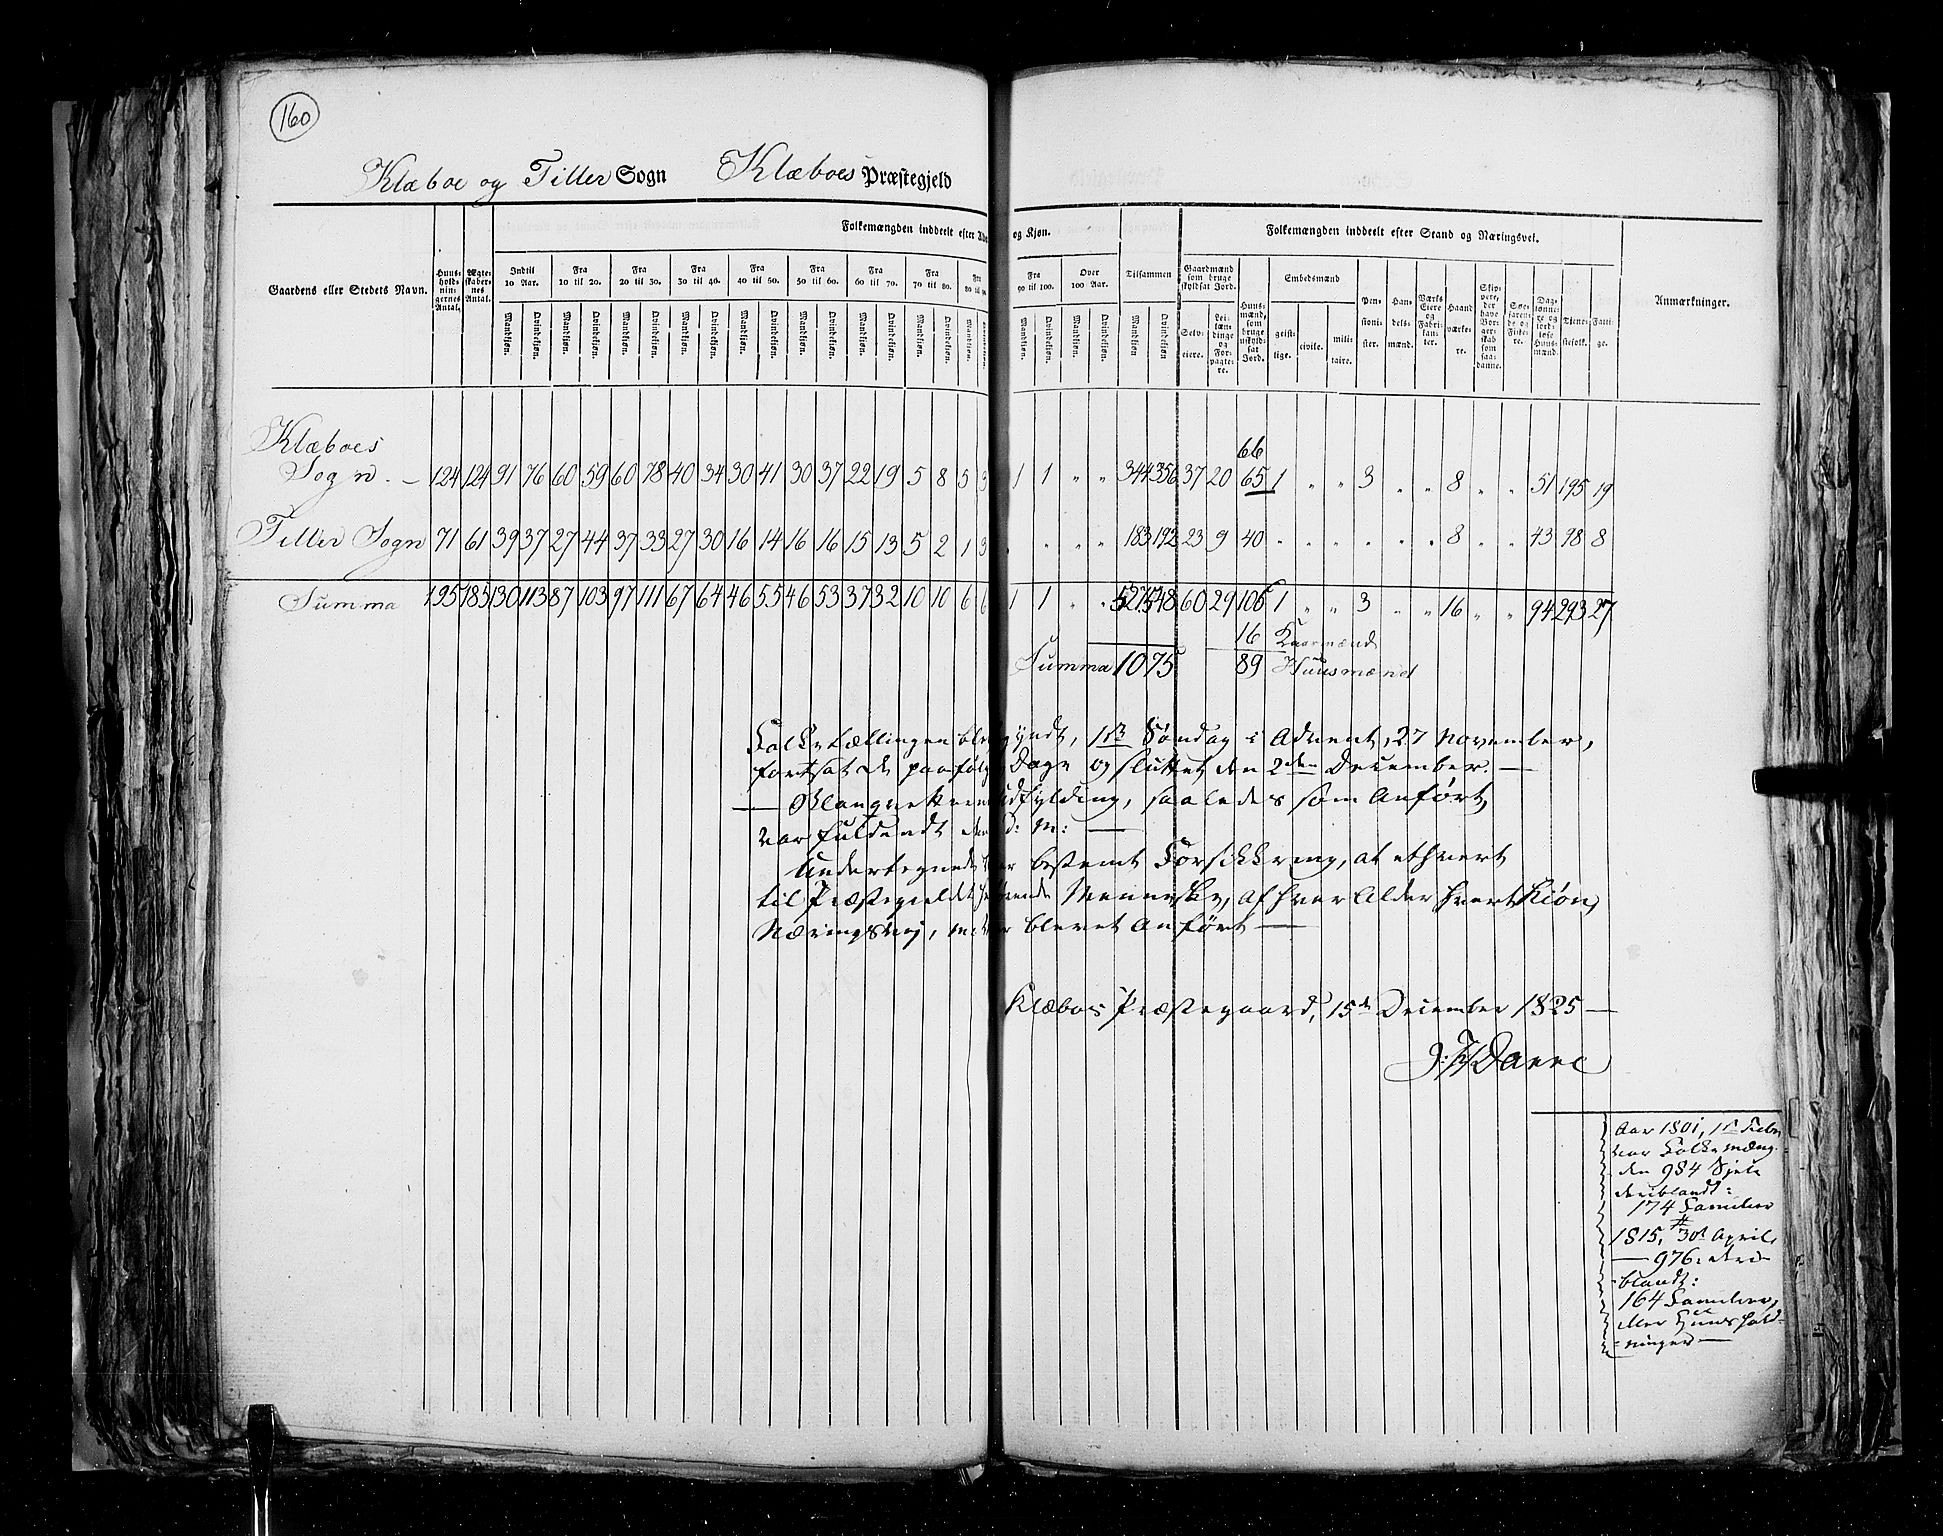 160
Klæboe og Tiller Sogn Klæboes Præstegjeld
Gaardens eller Stedets Navn.
Huusholdningernes Antal.
Ægteskabernes Antal.
Folkemængden inddeelt efter og Kjøn.
Indtil 10 Aar.
Fra 10 til 20.
Fra 20 til 30.
Fra 30 til 40.
Fra 40 til 50.
Fra 50 til 60.
Fra 60 til 70.
Fra 70 til 80.
Fra 90 til 100.
Over 100 Aar.
Tilsammen
Mandkjøn. Qvindekjøn.
Folkemængden inddeelt efter Stand og Næringsvei.
Gaardmænd som bruge skyldsat Jord.
Selveiere.
Leilændinge og Forpagtere.
Huusmænd, som bruge uskyldsat Jord.
Embedsmænd
geistlige. civile. militaire.
Pensionister.
Handelsmænd.
Værks Eiere og Fabrikanter.
Haandværkere.
Skippere, der have Borgerskab som saadanne.
Søefarende og Fiskere.
Daglønnere og jordløse Huusmænd.
Tjenestefolk.
Fattige.
Anmærkninger.
66
Klæboes
Sogn. – 124 124 91 76 60 59 60 78 40 34 30 41 30 37 22 19 5 8 5 3 1 1 " " 344 356 37 20 65 1 " " 3 " " 8 " " 51 195 19
Tiller Sogn 71 61 39 37 27 44 37 33 27 30 16 14 16 16 15 13 5 2 1 3 " " " " 183 192 23 9 40 " " " " " " 8 " " 43 98 8
Summa 195 185 130 113 87 103 97 111 67 64 46 55 46 53 37 32 10 10 6 6 1 1 " " 527 548 60 29 105 1 " " 3 " " 16 " " 94 293 27
16 Kaarmænd
Summa 1075 89 Huusmænd
Folketællingen begyndt, 1ste Søndag i Advent, 27 November,
fortsat de paafølg. Dage og sluttet den 2den December. —
— Blanquetternes Udfylding, saaledes som Anført,
var fuldendt den d: M: —
Undertegnede bestemt Forsikkring, at ethvert
til Præstegieldet hørende Menneske, af hver Alder hvert Kiøn,
Næringsvej, blevet Anført —
Klæboes Præstegaard, 15de December 1825 —
Darre
Aar 1801, 1ste Febr
var Folkemæng-
den 984 Sjele
deriblandt:
174 Familier
1815, 30te April,
— 976, deri-
blandt:
164 Familier,
eller Huushold-
ninger —